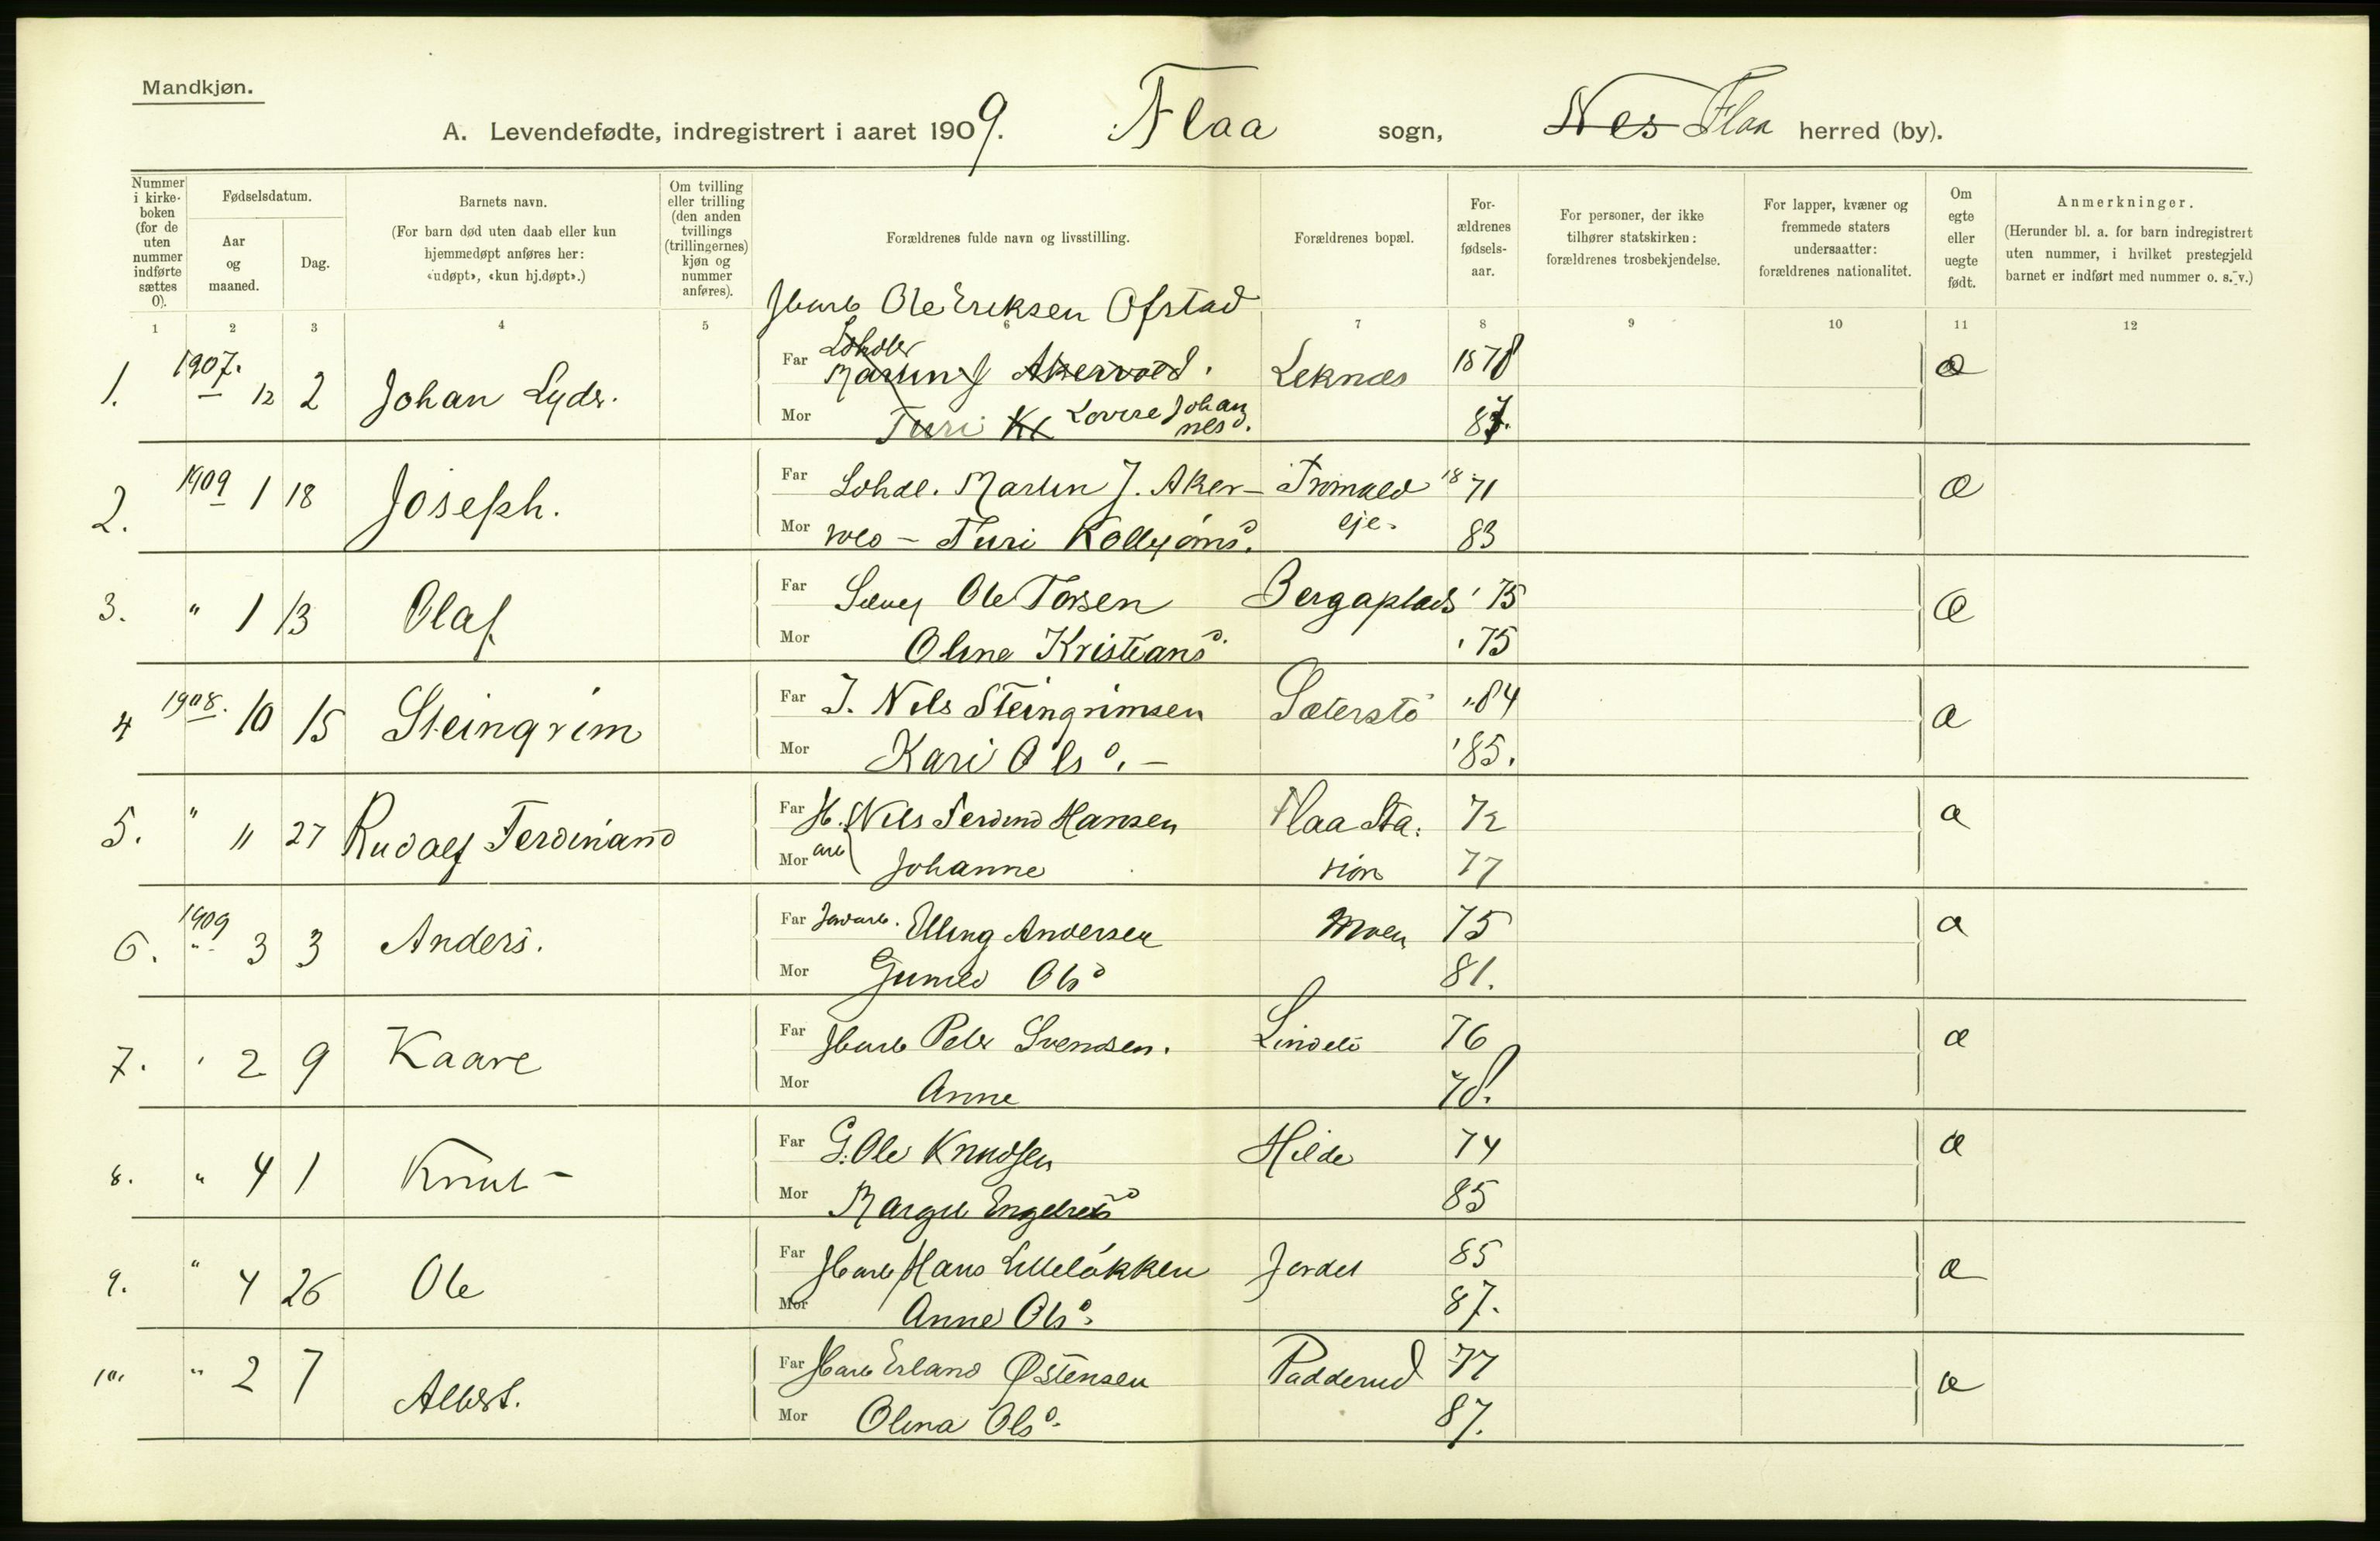 Mandkjøn.
A. Levendefødte, indregistrert i aaret 1909. Flaa sogn, Nes Flaa herred (by).
Nummer i kirke-boken (for de uten nummer indførte sættes 0).
Fødselsdatum.
Aar og maaned.
Dag.
Barnets navn.
(For barn død uten daab eller kun hjemmedøpt anføres her: «udøpt», «kun hj.døpt».)
Om tvilling eller trilling (den anden tvillings (trillingernes) kjøn og nummer anføres).
Forældrenes fulde navn og livsstilling.
Forældrenes bopæl.
For-ældrenes fødsels-aar.
For personer, der ikke tilhører statskirken: forældrenes trosbekjendelse.
For lapper, kvæner og fremmede staters undersaatter: forældrenes nationalitet.
Om egte eller uegte født.
Anmerkninger.
(Herunder bl. a. for barn indregistrert uten nummer, i hvilket prestegjeld barnet er indført med nummer o. s. v.)
1 2 3 4 5 6 7 8 9 10 11 12
Ole Eriksen Ofstad
1. 1907. 12 2 Johan Lyder. Far Martin J Akervold. Leknæs 1878
Mor Turi Lovise Johannesd. 87.
2. 1909 1 18 Joseph. Far Martin J. Aker- 1871
Mor vold - Turi eje. 83
3. " 1 13 Olaf Far Ole Torsen Bergaplads 75
Mor Oline Kristiansd. 75
4 1908. 10 15 Steingrim Far J. Nils Steingrimsen Sæterstø 84
Mor Kari Olsd. - 85.
5. " 11 27 Rudolf Ferdinand Far H. Nils Ferdind Hansen Flaa Sta- 72
Mor arb Johanne sion 77
6. 1909 3 3 Anders. Far Elling Andersen Moen 75
Mor Gunild Olsd 81.
7. 2 9 Kaare Far Peder Svendsen. Lindeli 76
Mor Anne 78.
8. " 4 1 Knut - Far G. Ole Knudsen Hilde 74
Mor Margit Engebretsd 85
9. " 4 26 Ole Far Hans Lilleløkken Jordet 85
Mor Anne Olsd. 87.
10. " 2 7 Albert. Far Erland Østensen Padderud 77
Mor Olina Olsd. 87.